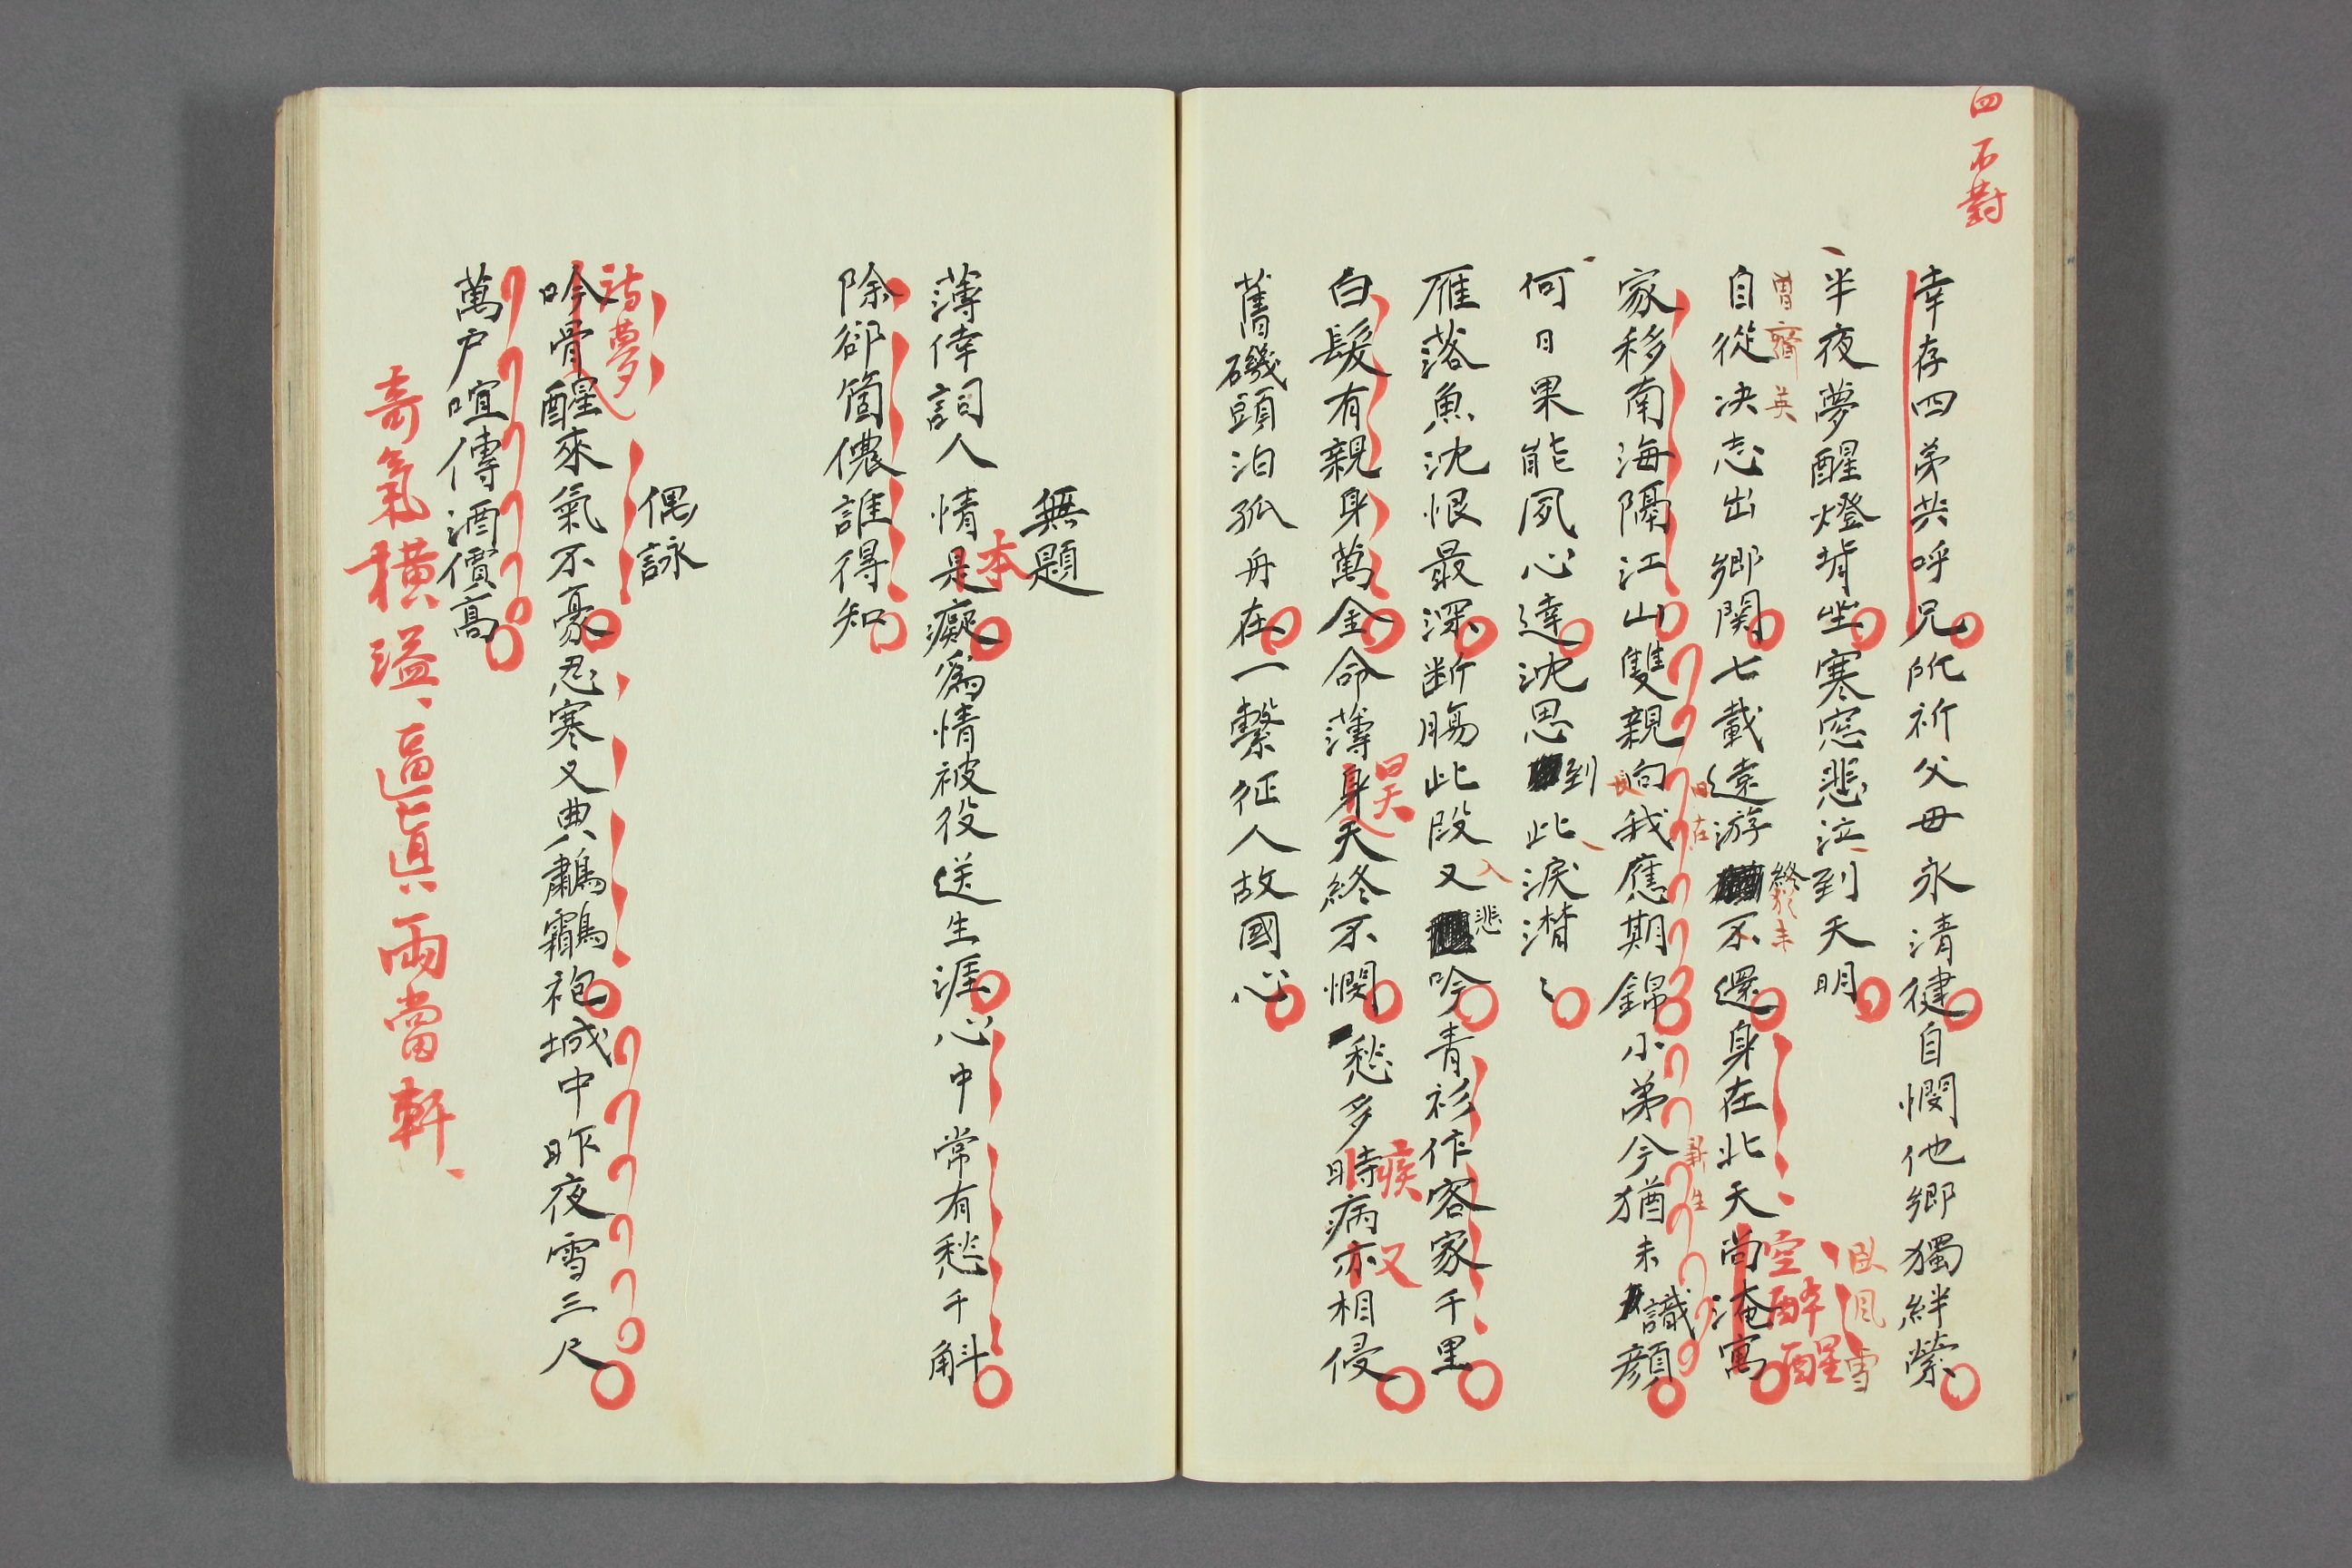 四不對
幸存四弟共呼兄所祈父母永清健自憫他鄉獨絆縈
半夜夢醒燈背坐寒窓悲泣到天明
臥風雪
曽齋英
終
猶未
空醉醒
自從決志出鄉関七載遠游不還身在北天尚淹寓
家移南海隔江山雙親向我應期錦小弟今猶未識顔
何日果能夙心達沈思到此淚潸〻
悲
雁落魚沈恨最深断腸此段又吟青衫作客家千里
昊
疾又
白髮有親身萬金命薄身天終不憫愁多時病亦相侵
舊磯頭泊孤舟在一繫征人故國心
無題
本
薄倖詞人情是癡為情被役送生涯心中常有愁千斛
除卻箇儂誰得知
偶詠
詩夢
吟骨醒來氣不豪忍寒又典鷫鸘袍城中昨夜雪三尺
萬戶喧傳酒價高
奇氣橫溢、逼真兩當軒、